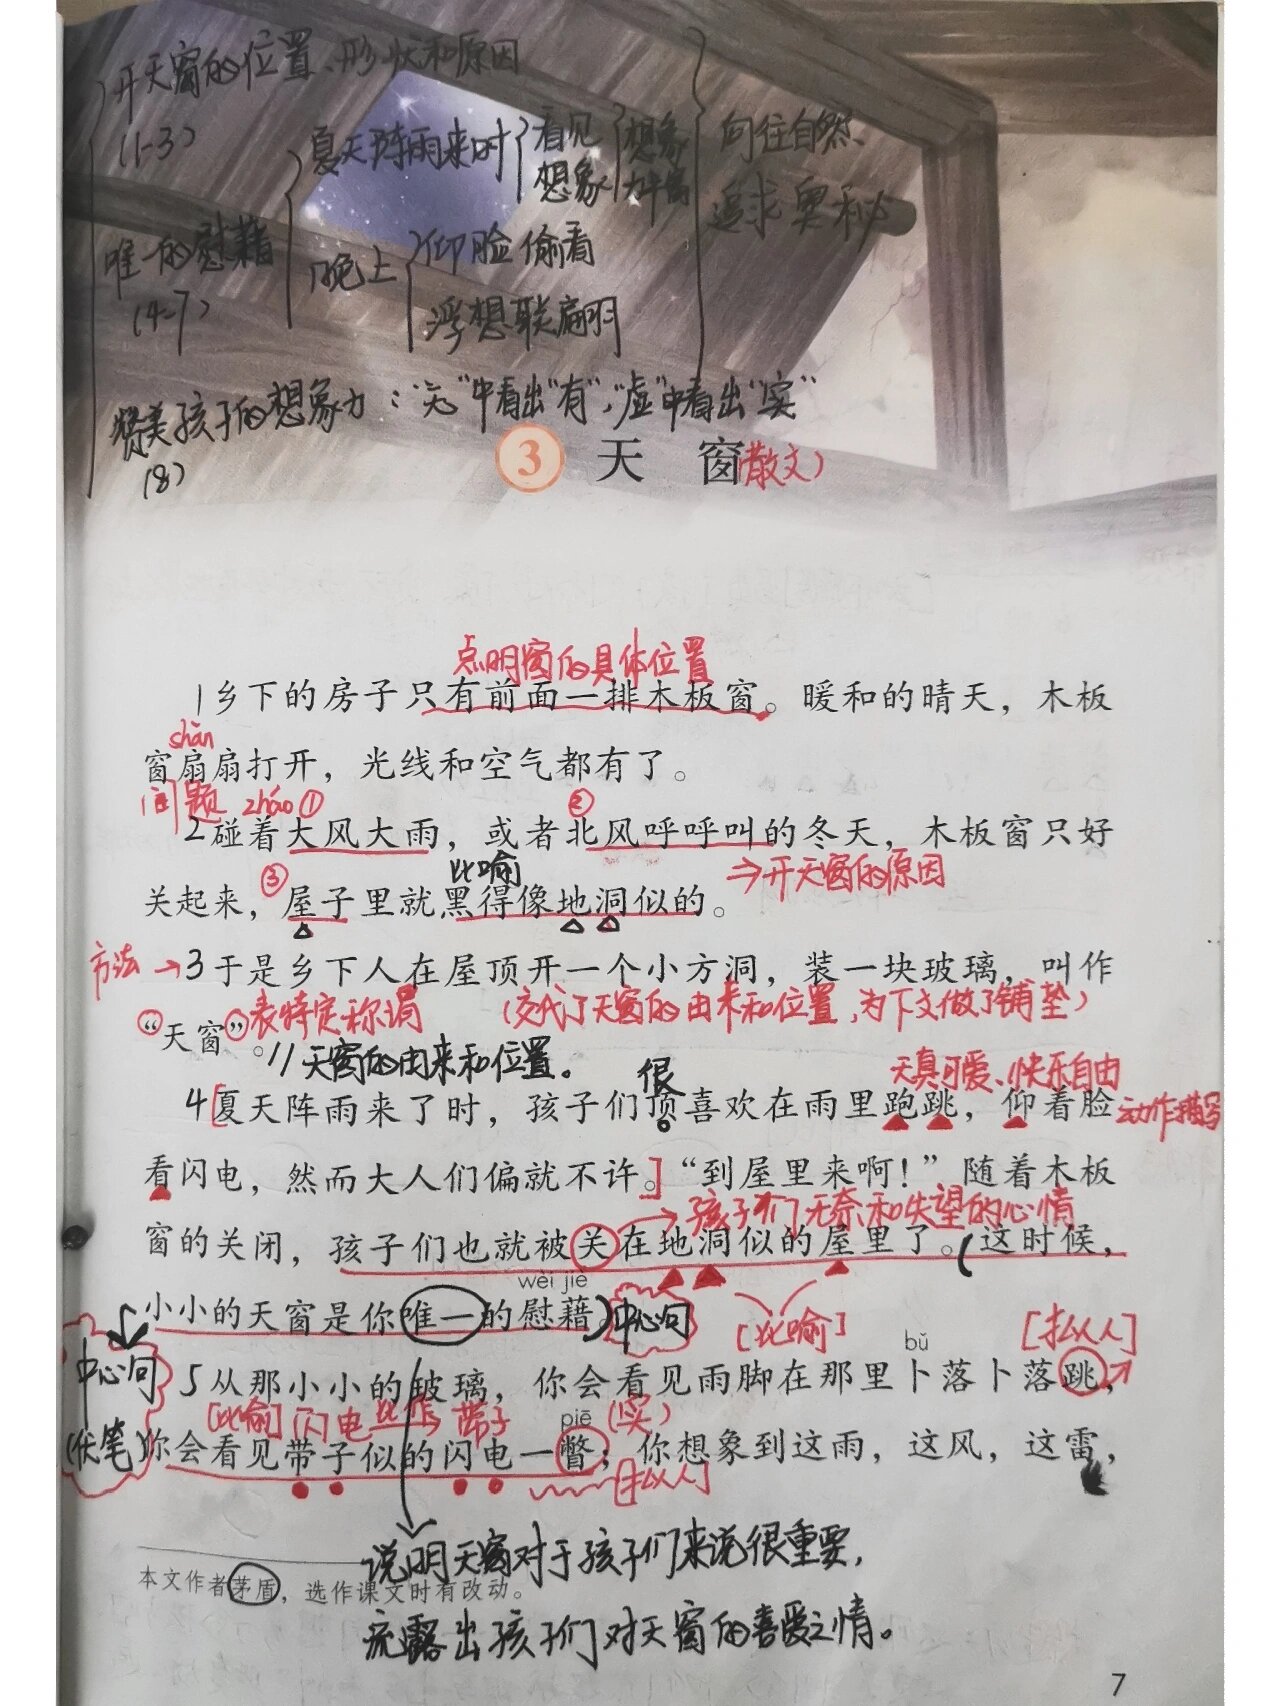 开天窗的位置、形状和原因
(1-3)
夏天阵雨来时
看见
想象
想象
丰富
向往自然、
追求奥秘
唯一的慰藉
(4-7)
晚上
仰脸偷看
浮想联翩
赞美孩子的想象力：“无”中看出“有”，“虚”中看出“实”
(8)
3 天 窗(散文)
点明窗的具体位置
1乡下的房子只有前面一排木板窗。暖和的晴天，木板
shān
窗扇扇打开，光线和空气都有了。
问题 zháo ① ②
2碰着大风大雨，或者北风呼呼叫的冬天，木板窗只好
比喻 →开天窗的原因
③
关起来，屋子里就黑得像地洞似的。
方法→3于是乡下人在屋顶开一个小方洞，装一块玻璃，叫作
表特定称谓 (交代了天窗的由来和位置，为下文做了铺垫)
“天窗”。//天窗的由来和位置。
很 天真可爱、快乐自由
4[夏天阵雨来了时，孩子们顶喜欢在雨里跑跳，仰着脸 动作描写
看闪电，然而大人们偏就不许。]“到屋里来啊！”随着木板
→孩子们无奈和失望的心情
窗的关闭，孩子们也就被关在地洞似的屋里了。(这时候，
wèi jiè
小小的天窗是你唯一的慰藉。)中心句 [比喻] [拟人]
bǔ
中心句
(伏笔)
5从那小小的玻璃，你会看见雨脚在那里卜落卜落跳，
[比喻]闪电比作带子 piē (实)
你会看见带子似的闪电一瞥；你想象到这雨，这风，这雷，
[拟人]
说明天窗对于孩子们来说很重要，
本文作者茅盾，选作课文时有改动。
流露出孩子们对天窗的喜爱之情。
7